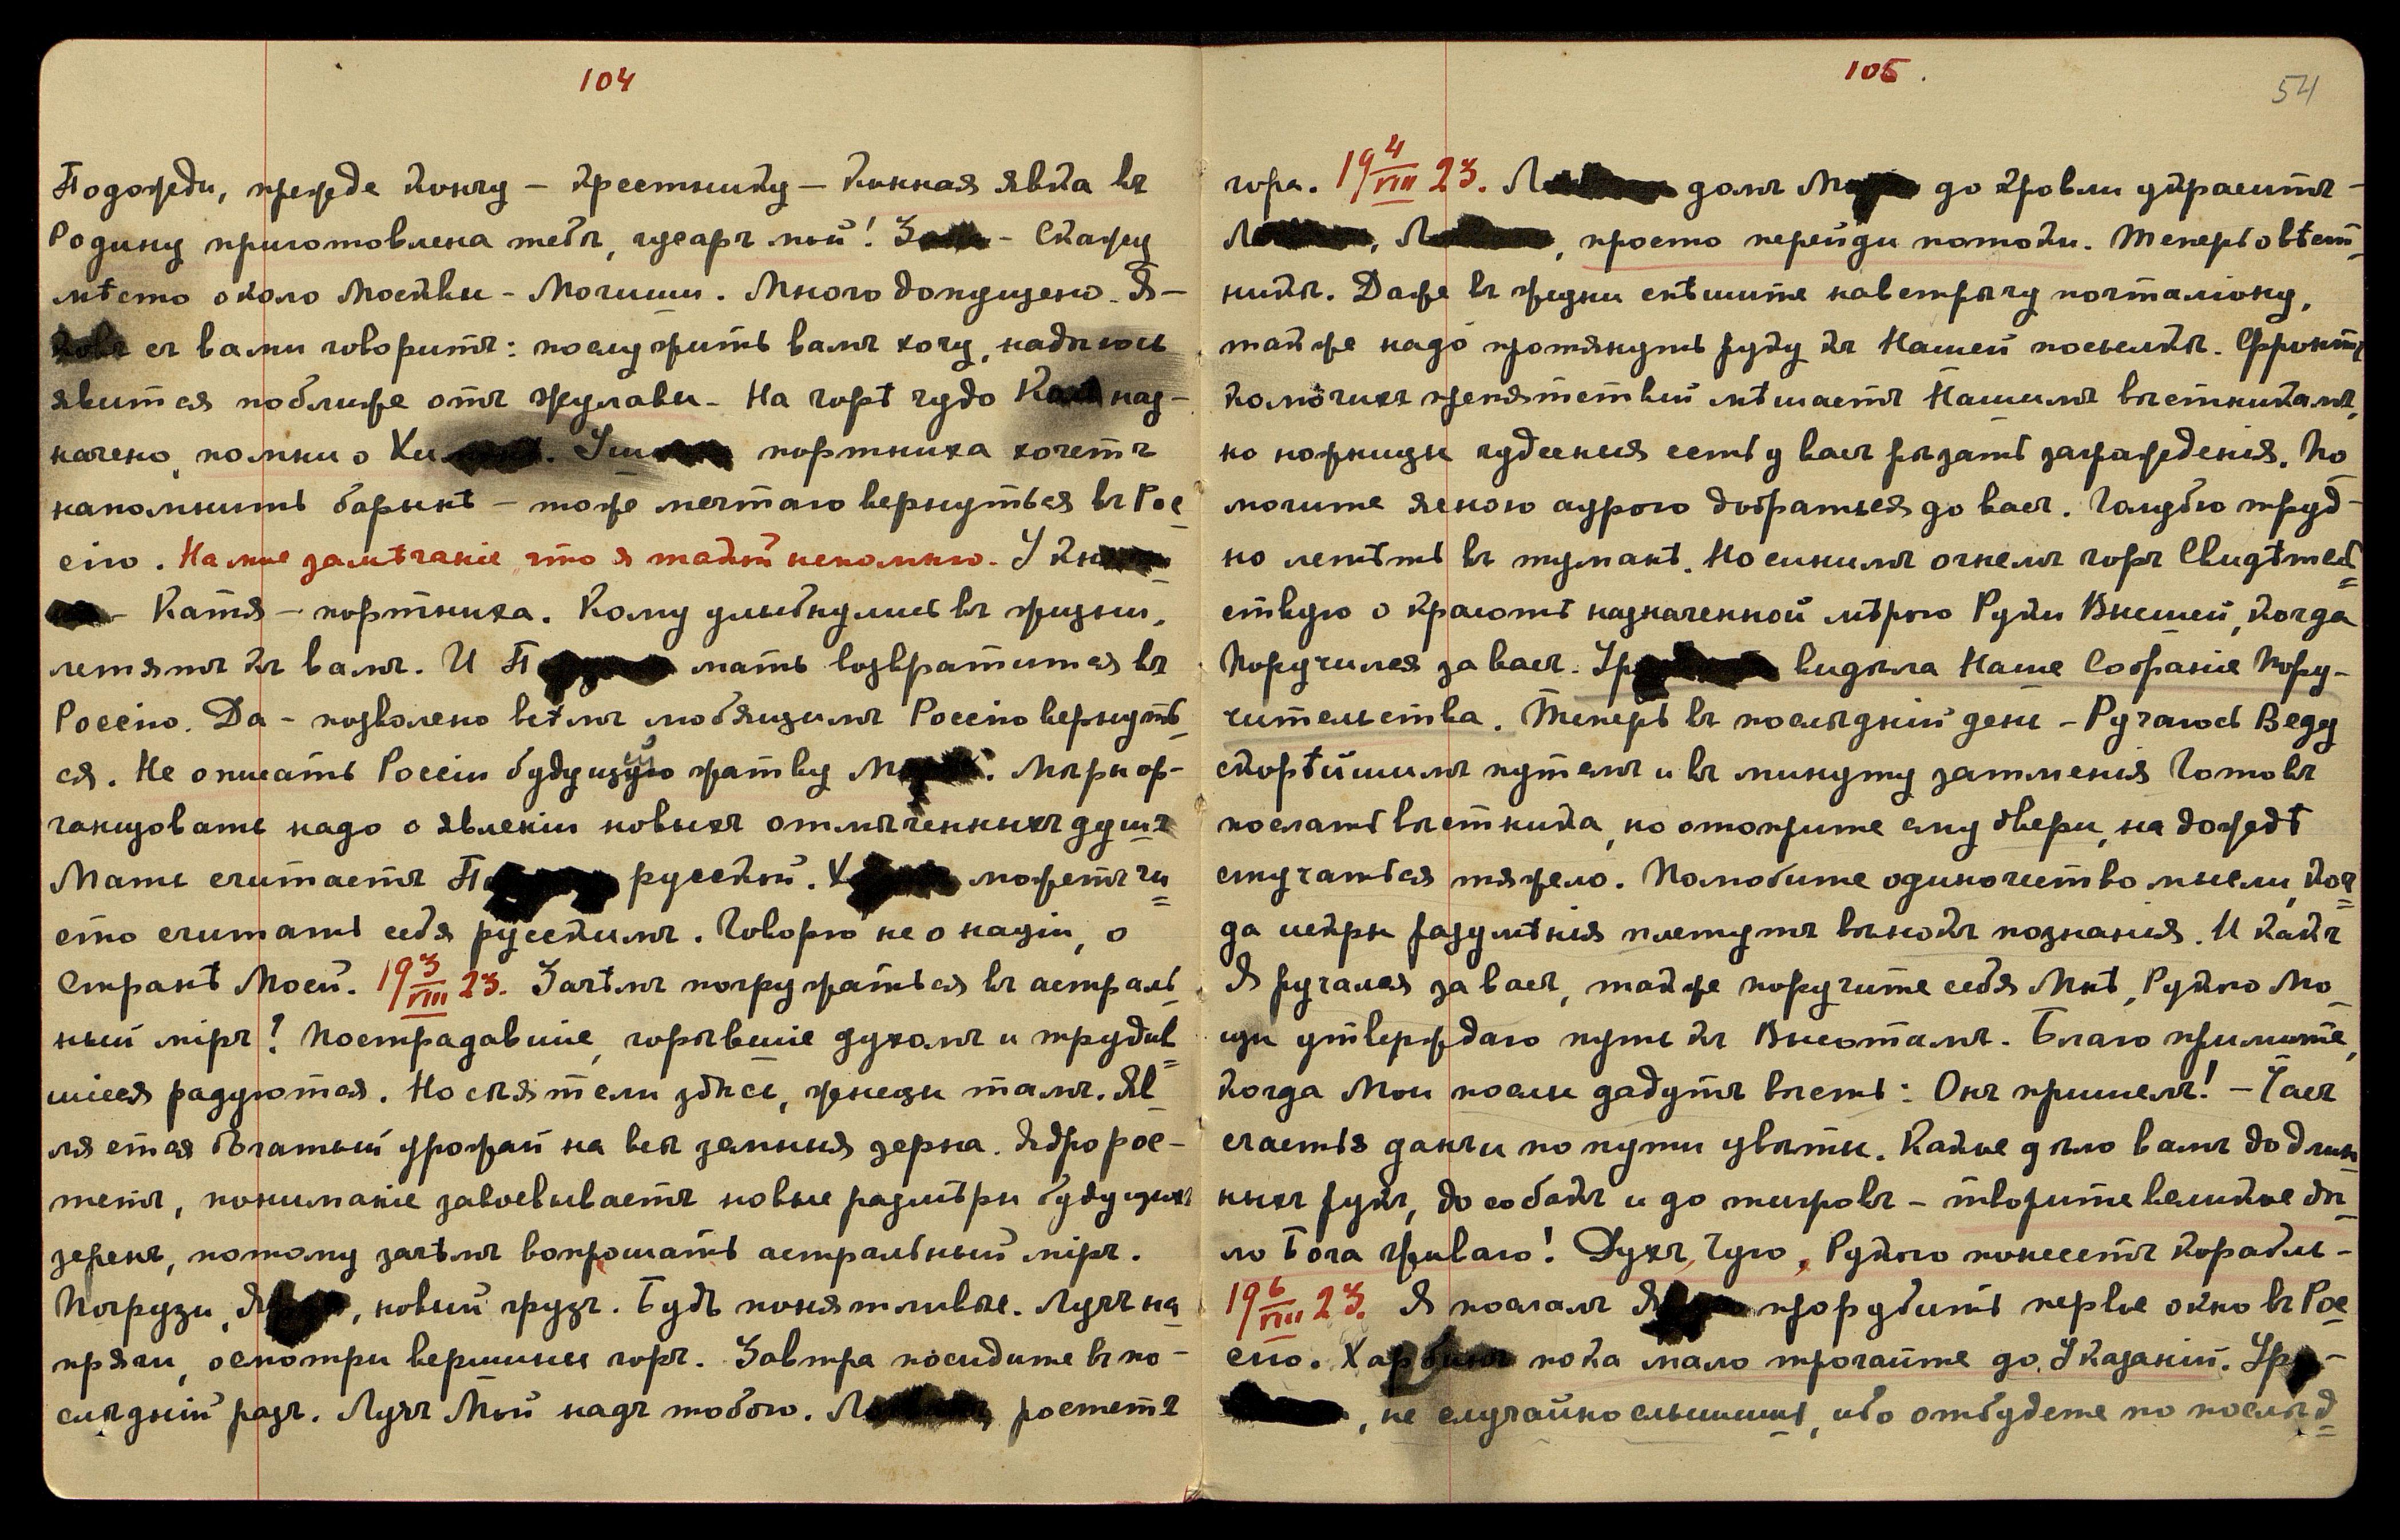 104
Подожди, прежде кончу – крестнику – конная явка въ
Родину приготовлена тебѣ, гусаръ мой! – Скажу
мѣсто около Москвы – Могиши. Много допущено. Я –
съ вами говоритъ: послужить вамъ хочу, надѣюсь
явится поближе отъ Жулави – На горѣ чудо наз-
начено, помни о портниха хочетъ
напомнить барынѣ – тоже мечтаю вернуться въ Рос
сію. На мое замѣчаніе, что я такой непомню. У
– Катя – портниха. Кому улыбнулись въ жизни,
летятъ къ вамъ. И мать возвратится въ
Россію. Да – позволено всѣмъ любящимъ Россію вернуть
ся. Не описать Россіи будущую жатву Мѣры ор-
ганизовать надо о явленіи новыхъ отмѣченныхъ душъ
Мать считаетъ русской. можетъ чи
сто считать себя русскимъ. Говорю не о націи, о
Странѣ Моей. 19 3/VIII 23. Зачѣмъ погружаться въ астраль
ный міръ? Пострадавшіе, горѣвшіе духомъ и трудив
шіеся радуются. Но сѣятели здѣсь, жнецы тамъ. Яв
ляется богатый урожай на всѣ земныя зерна. Ядро рос-
тетъ, пониманіе завоевываетъ новые размѣры будущихъ
зеренъ, потому зачѣмъ вопрошать астральный міръ.
Погрузи, новый грузъ. Будь понятливѣе. Лучъ на
пряги, осмотри вершины горъ. Завтра посидите въ по-
слѣдній разъ. Лучъ Мой надъ тобою. ростетъ
105.
54
гора. 19 4/VIII 23. домъ до кровли украситъ –
просто перейди потоки. Теперь о вѣст
никѣ. Даже въ жизни спѣшите навстрѣчу почталіону,
также надо протянуть руку къ Нашей посылкѣ.
препятствій мѣшаетъ Нашимъ вѣстникамъ,
но ножницы чудесныя есть у васъ рѣзать загражденія. По
могите ясною аурою добраться до васъ. Голубю труд-
но летѣть въ туманѣ. Но синимъ огнемъ горъ Свидѣтель
ствую о красотѣ назначенной мѣрою Руки Высшей, когда
Поручился за васъ. видѣла Наше Собраніе Пору-
чительства. Теперь въ послѣдній день – Ручаюсь Веду
скорѣйшимъ путемъ и въ минуту затменія Готовъ
послать вѣстника, но отоприте ему двери, на дождѣ
стучаться тяжело. Полюбите одиночество мысли, ког
да искры разумѣнія плетутъ вѣнокъ познанія. И какъ
Я ручался за васъ, также поручите себя Мнѣ, Рукою Мо
щи утверждаю путь къ Высотамъ. Благо примите,
когда Мои послы дадутъ вѣсть: Онъ пришелъ! – Часъ
счастья данъ и по пути цвѣты. Какое дѣло вамъ до длин
ныхъ рукъ, до собакъ и до тигровъ – творите великое дѣ
ло Бога Живаго! Духъ, Чую, Рукою понесетъ корабль –
19 6/VIII 23. Я послалъ прорубить первое окно въ Рос
сію. Харбинъ пока мало трогайте до Указаній.
, не случайно слышишь, ибо отбудете по послѣд